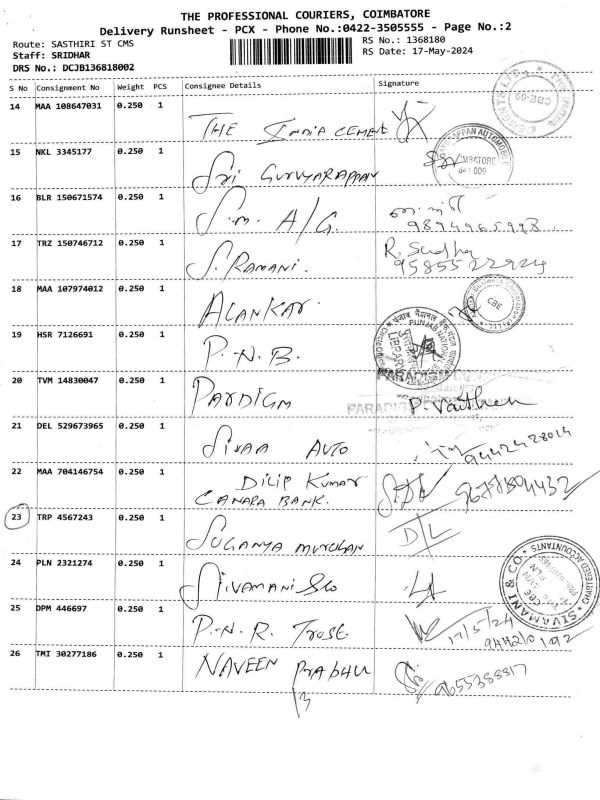 THE PROFESSIONAL COURIERS, COIMBATORE
Delivery Runsheet - PCX - Phone No.:0422-3505555 - Page No.:2
Route: SASTHIRI ST CMS
RS No.: 1368180
Staff: SRIDHAR
RS Date: 17-May-2024
DRS No.: DCJB136818002
S No Consignment No Weight PCS Consignee Details Signature
14 MAA 108647031 0.250 1
THE India CEMENT
CBE-09
15 NKL 3345177 0.250 1
Sri Guruyarappan
16 BLR 150671574 0.250 1
S.m. A/G.
17 TRZ 150746712 0.250 1
S. RAMANI.
R. Sudha
18 MAA 107974012 0.250 1
ALANKAR
CBE
19 HSR 7126691 0.250 1
P.N.B.
PUNJAB NATIONAL
20 TVM 14830047 0.250 1
PARDIGM
PARADIGM
21 DEL 529673965 0.250 1
SIVAA AUTO
9442428014
22 MAA 704146754 0.250 1
DILIP KUMAR
CANARA BANK.
23 TRP 4567243 0.250 1
SUGANYA MURUGAN
D/L
24 PLN 2321274 0.250 1
SIVAMANI & CO
SIVAMANI & CO
CHARTERED ACCOUNTANTS
25 DPM 446697 0.250 1
P.N.R. Trost.
17/5/24
26 TMI 30277186 0.250 1
NAVEEN PRABHU
9655388817